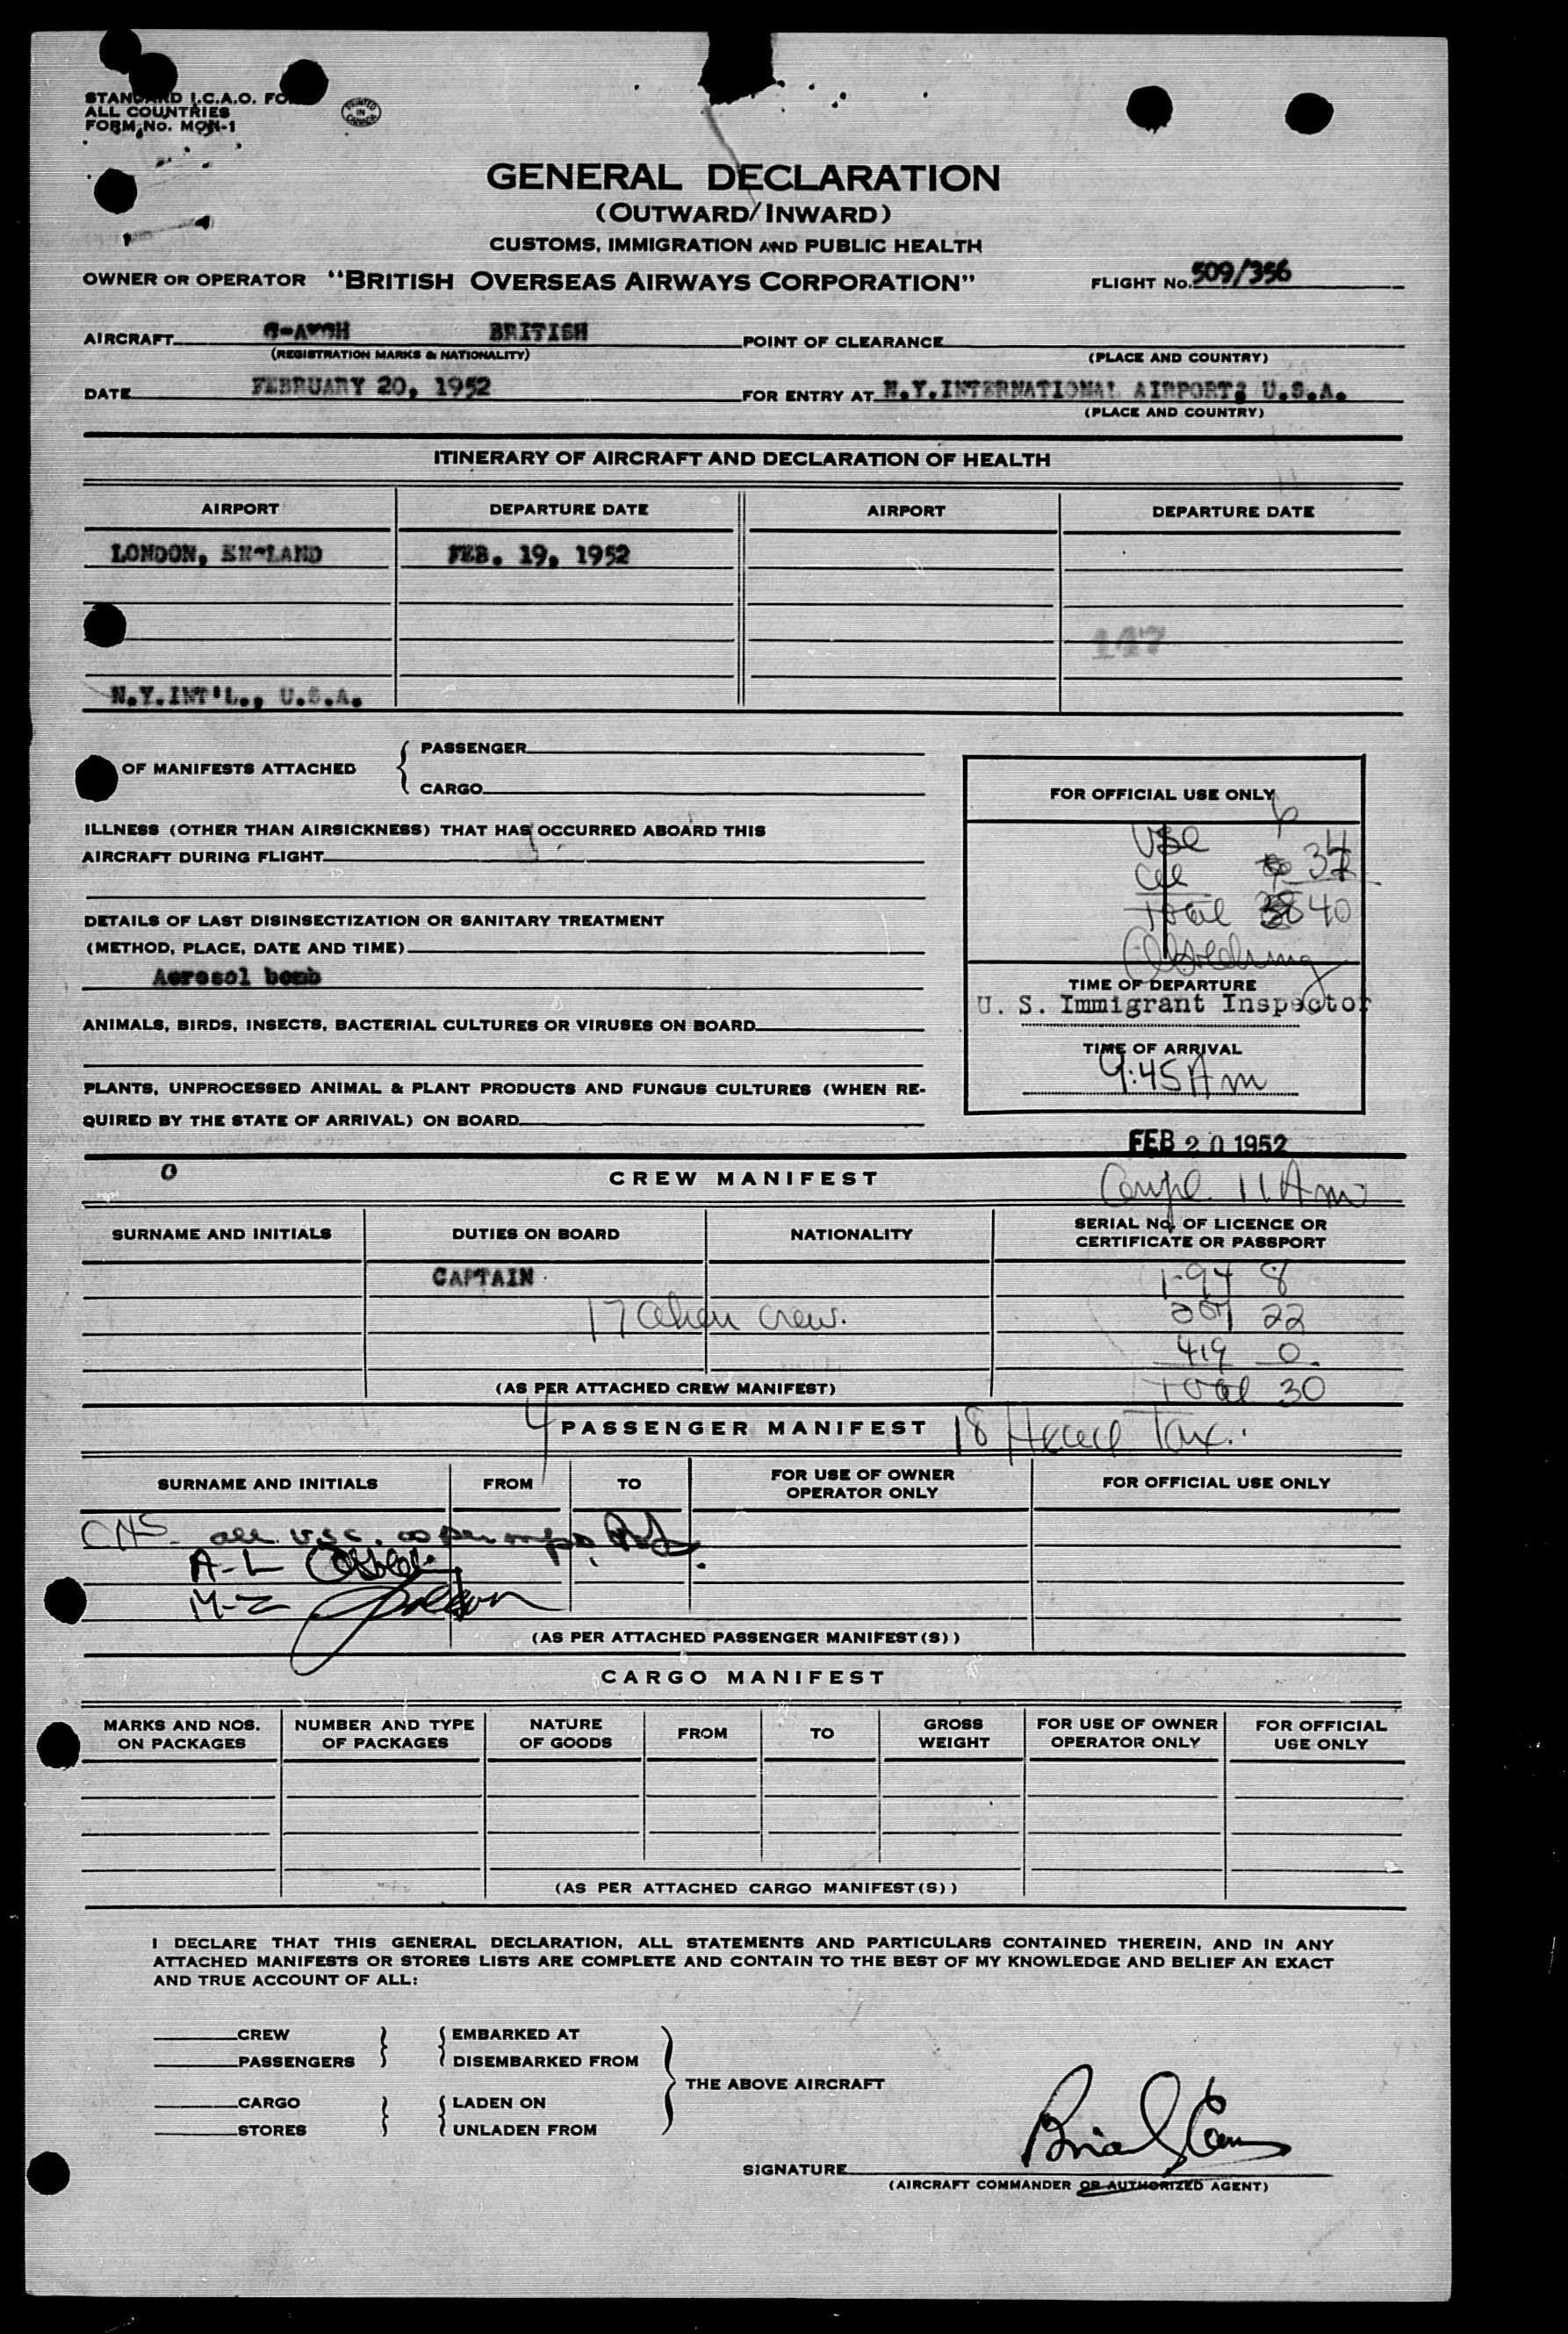 STANDARD I.C.A.O. FO
ALL COUNTRIES
FORM No. MON-1
PRINTED IN CANADA
GENERAL DECLARATION
(OUTWARD/INWARD)
CUSTOMS, IMMIGRATION AND PUBLIC HEALTH
OWNER OR OPERATOR "BRITISH OVERSEAS AIRWAYS CORPORATION" FLIGHT No. 509/356
AIRCRAFT BRITISH POINT OF CLEARANCE
(REGISTRATION MARKS & NATIONALITY) (PLACE AND COUNTRY)
DATE FEBRUARY 20, 1952 FOR ENTRY AT N.Y.INTERNATIONAL AIRPORT, U.S.A.
(PLACE AND COUNTRY)
ITINERARY OF AIRCRAFT AND DECLARATION OF HEALTH
AIRPORT DEPARTURE DATE AIRPORT DEPARTURE DATE
LONDON, ENGLAND FEB. 19, 1952
147
N.Y.INT'L., U.S.A.
OF MANIFESTS ATTACHED { PASSENGER
CARGO
ILLNESS (OTHER THAN AIRSICKNESS) THAT HAS OCCURRED ABOARD THIS
AIRCRAFT DURING FLIGHT
DETAILS OF LAST DISINSECTIZATION OR SANITARY TREATMENT
(METHOD, PLACE, DATE AND TIME)
Aerosol bomb
ANIMALS, BIRDS, INSECTS, BACTERIAL CULTURES OR VIRUSES ON BOARD
PLANTS, UNPROCESSED ANIMAL & PLANT PRODUCTS AND FUNGUS CULTURES (WHEN RE-
QUIRED BY THE STATE OF ARRIVAL) ON BOARD
FOR OFFICIAL USE ONLY
USC 6
34
Total 40
TIME OF DEPARTURE
U. S. Immigrant Inspector
TIME OF ARRIVAL
9:45 Am
FEB 20 1952
CREW MANIFEST
Compl. 11 Am
SURNAME AND INITIALS DUTIES ON BOARD NATIONALITY SERIAL No. OF LICENCE OR
CERTIFICATE OR PASSPORT
CAPTAIN I-94 8
17 alien crew. 257 22
419 0
(AS PER ATTACHED CREW MANIFEST) Total 30
4 PASSENGER MANIFEST 18 Head Tax.
SURNAME AND INITIALS FROM TO FOR USE OF OWNER
OPERATOR ONLY FOR OFFICIAL USE ONLY
all USC. as per
A-L
M-Z
(AS PER ATTACHED PASSENGER MANIFEST(S))
CARGO MANIFEST
MARKS AND NOS.
ON PACKAGES NUMBER AND TYPE
OF PACKAGES NATURE
OF GOODS FROM TO GROSS
WEIGHT FOR USE OF OWNER
OPERATOR ONLY FOR OFFICIAL
USE ONLY
(AS PER ATTACHED CARGO MANIFEST(S))
I DECLARE THAT THIS GENERAL DECLARATION, ALL STATEMENTS AND PARTICULARS CONTAINED THEREIN, AND IN ANY
ATTACHED MANIFESTS OR STORES LISTS ARE COMPLETE AND CONTAIN TO THE BEST OF MY KNOWLEDGE AND BELIEF AN EXACT
AND TRUE ACCOUNT OF ALL:
CREW EMBARKED AT
PASSENGERS DISEMBARKED FROM
THE ABOVE AIRCRAFT
CARGO LADEN ON
STORES UNLADEN FROM
SIGNATURE
(AIRCRAFT COMMANDER OR AUTHORIZED AGENT)